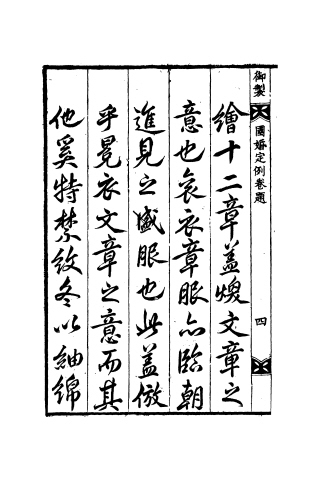 御製
國婚定例卷題
四
繪十二章盖煥文章之
意也袞衣章服亦臨朝
進見之盛服也此盖倣
乎冕衣文章之意而其
他奚特禁紋冬以紬綿